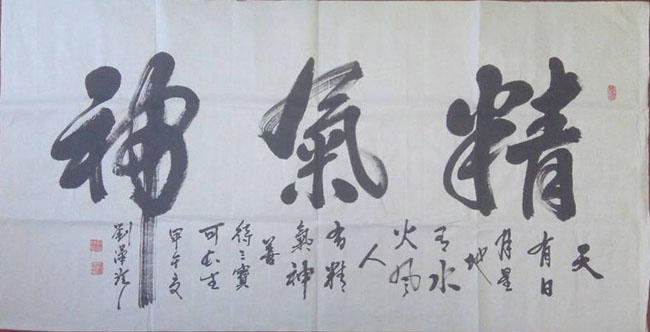 精氣神
天
有日
月星
地
有水
火風
人
有精
氣神
善
待三寶
可長生
甲午夏